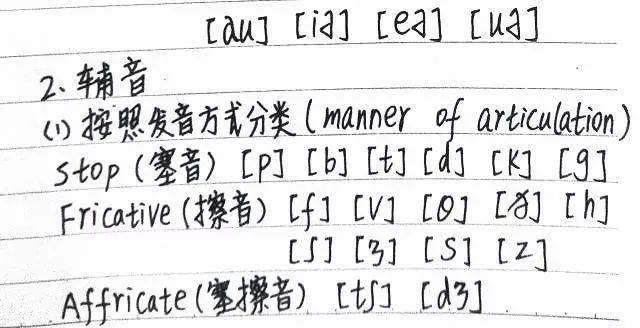 [au] [iə] [eə] [uə]
2. 辅音
(1) 按照发音方式分类 (manner of articulation)
stop (塞音) [p] [b] [t] [d] [k] [g]
Fricative (擦音) [f] [v] [θ] [ð] [h]
[ʃ] [ʒ] [s] [z]
Affricate (塞擦音) [tʃ] [dʒ]